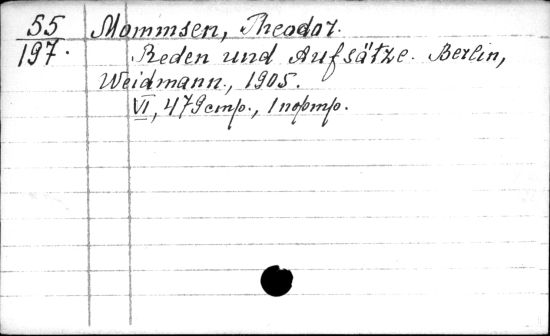 55 Mommsen, Theodor.
197. Reden und Aufsätze. Berlin,
Weidmann, 1905.
VI, 479 стр., 1 портр.